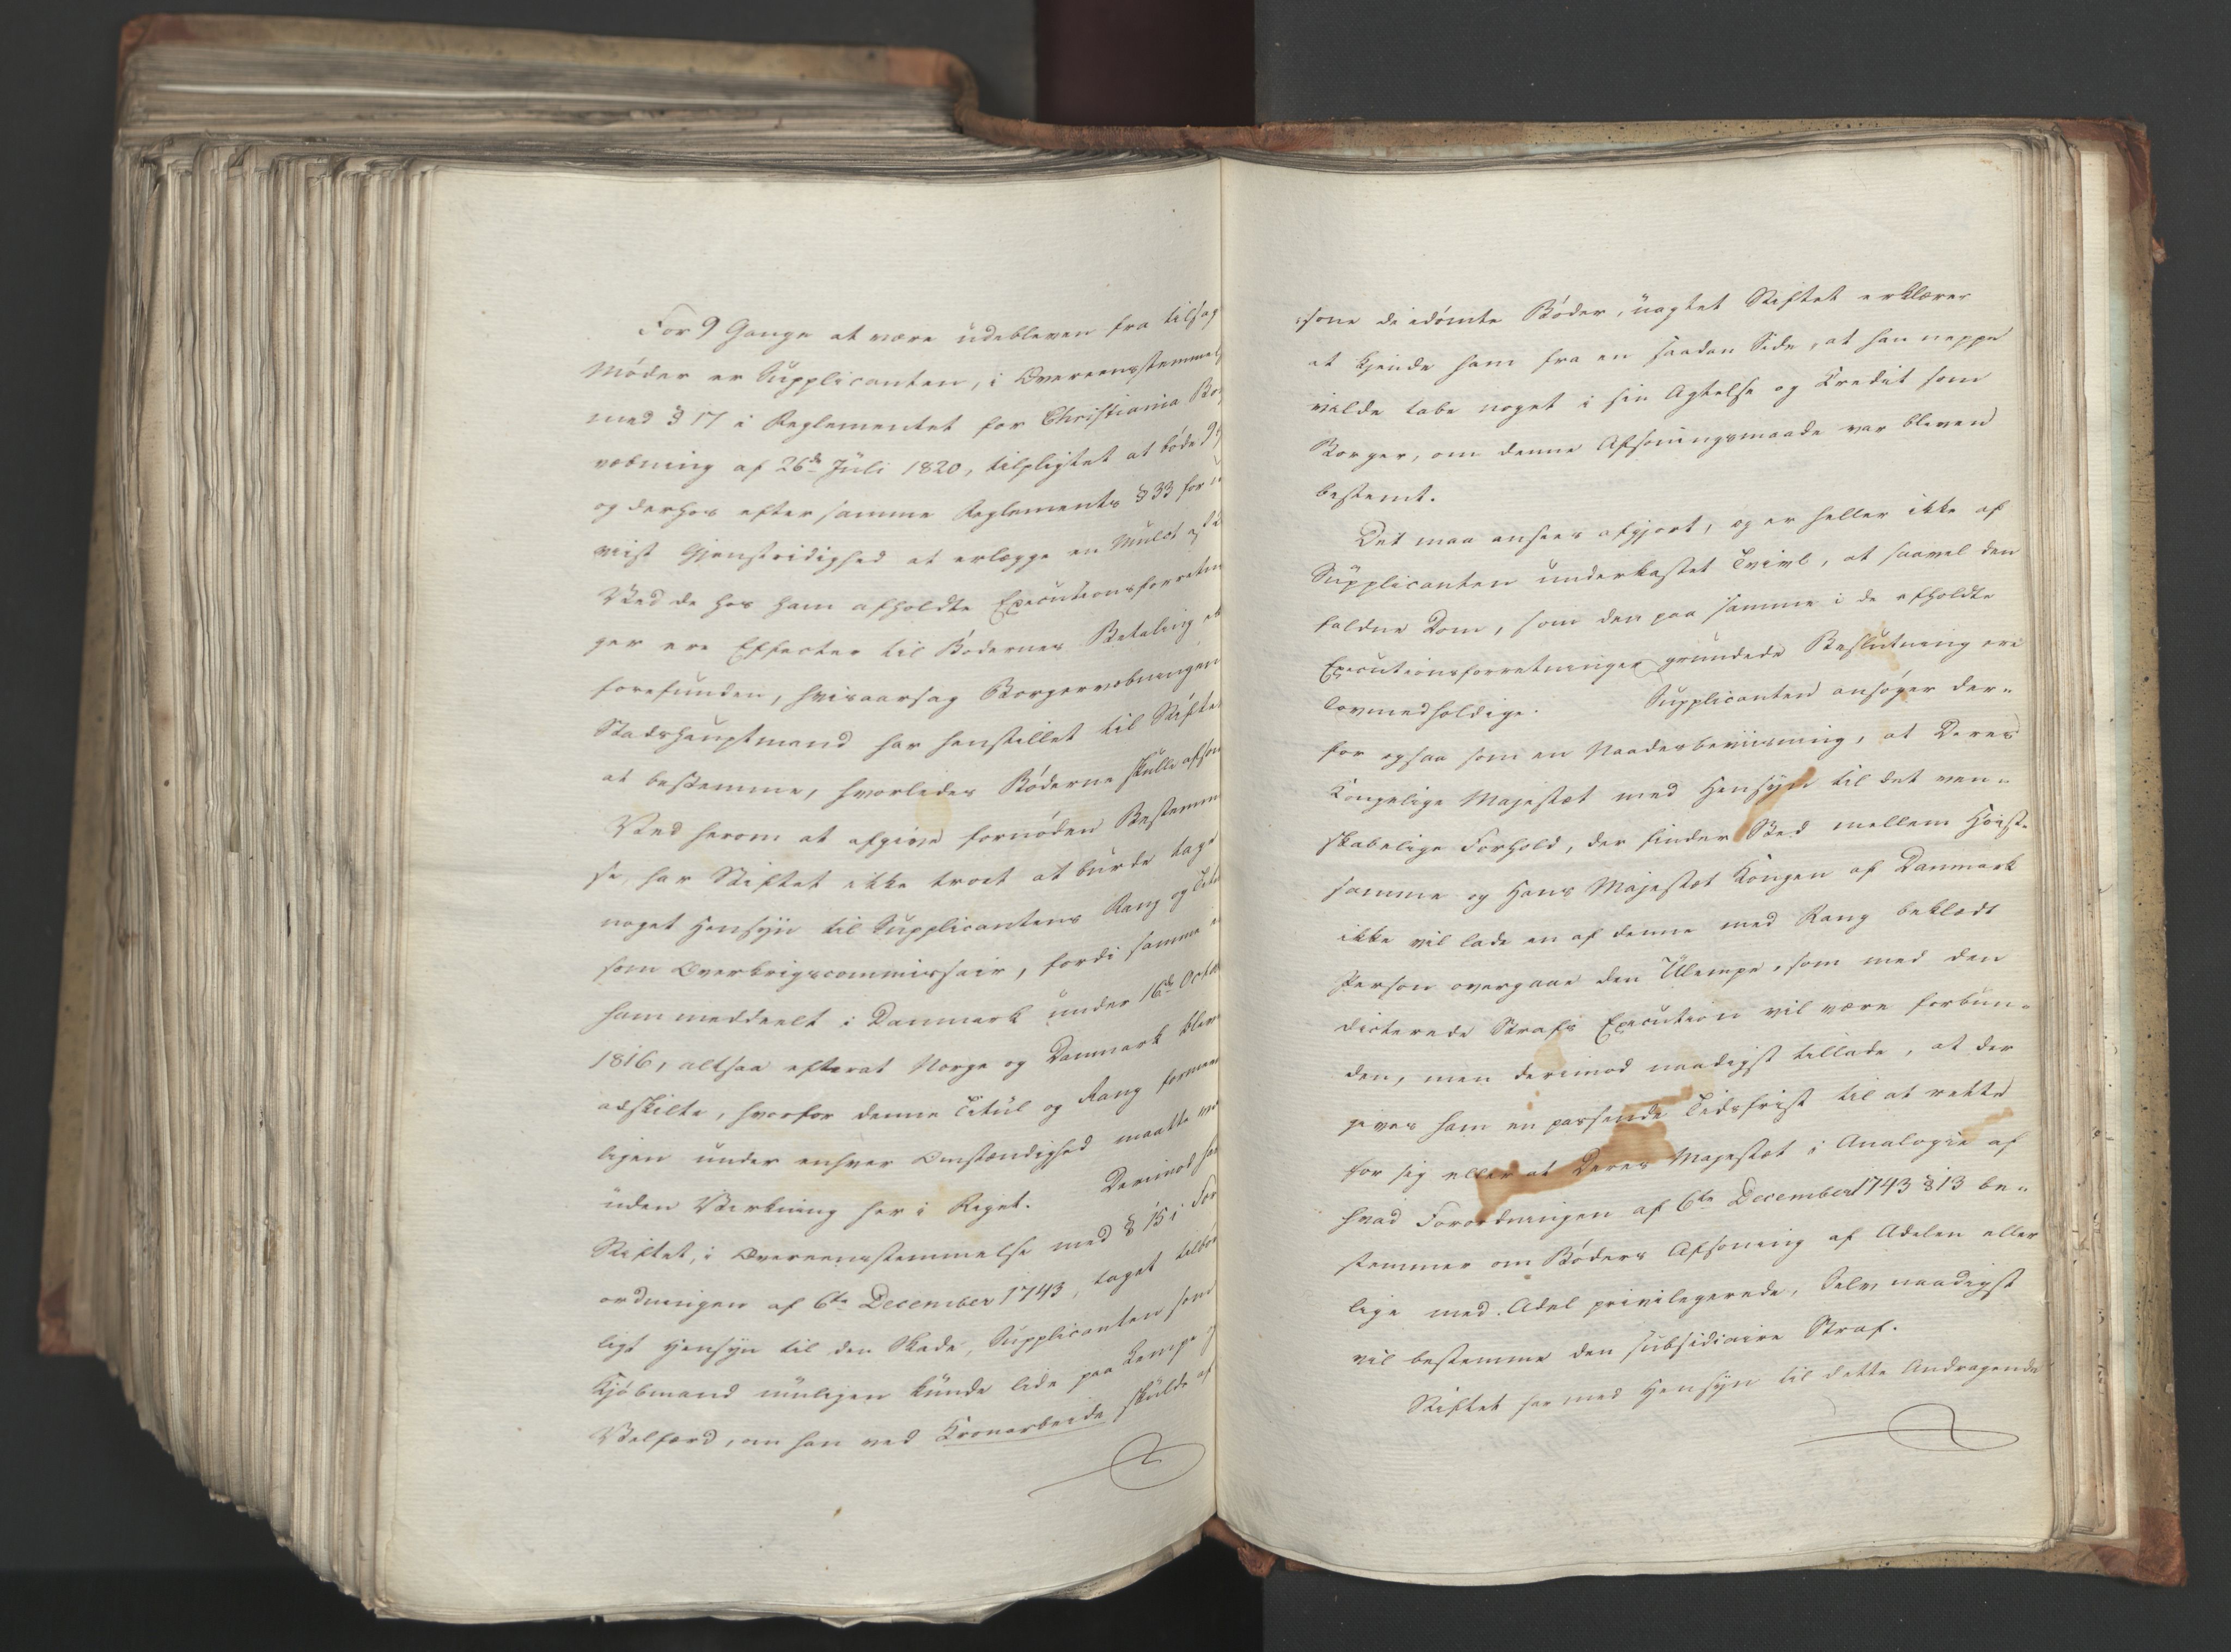 For 9 Gange at være udebleven fra tilsag
Møder er Supplicanten, i Overeensstemmels
med § 17 i Reglementet for Christiania Bor
væbning af 26de Juli 1820, tilpligtet at bøde 9
og derhos efter samme Reglements § 33 for u
viist Gjenstridighed at erlægge en Mulct af
Ved de hos ham afholdte Executionsforretnin
ger ere Effecter til Bødernes Betaling ei
forefunden, hvisaarsag Borgervæbningens
Stadshauptmand har henstillet til Stiftet
at bestemme, hvorledes Bøderne skulle afson
Ved herom at afgive fornøden Bestemm
se, har Stiftet ikke troet at burde tage
noget Hensyn til Supplicantens Rang og Titel
som Overkrigscommissair, fordi samme er
ham meddeelt i Danmark under 16de Octob
1816, altsaa efterat Norge og Danmark blev
adskilte, hvorfor denne Titul og Rang formeent
ligen under enhver Omstændighed maatte være
uden Virkning her i Riget. Derimod har
Stiftet, i Overeensstemmelse med § 15 i For
ordningen af 6te December 1743, taget tilbør
ligt Hensyn til den Skade, Supplicanten som
Kjøbmand muligen kunde lide paa Kempe og
Velfærd, om han ved Kronarbeide skulde af
sone de idømte Bøder, uagtet Stiftet erklærer
at kjende ham fra en saadan Side, at han neppe
vilde tabe noget i sin Agtelse og Credit som
Borger, om denne Afsoningsmaade var bleven
bestemt.
Det maa ansees afgjort, og er heller ikke af
Supplicanten underkastet Tvivl, at saavel den
faldne Dom, som den paa samme i de afholdte
Executionsforretninger grundede Beslutning ere
lovmedholdige. Supplicanten ansøger der-
for ogsaa som en Naadesbeviisning, at Deres
Kongelige Majestæt med Hensyn til det ven-
skabelige Forhold, der finder Sted mellem Høist-
samme og Hans Majestæt Kongen af Danmark
ikke vil lade en af denne med Rang beklædt
Person overgaae den Ulempe, som med den
dicterede Strafs Execution vil være forbun-
den, men derimod naadigst tillade, at der
geves ham en passende Tidsfrist til at rette
for sig eller at Deres Majestæt i Analogie af
hvad Forordningen af 6te December 1743 § 13 be-
stemmer om Bøders Afsoning af Adelen eller
lige med Adel privilegerede, Selv naadigst
vil bestemme den subsidiaire Straf.
Stiftet har med Hensyn til dette Andragende